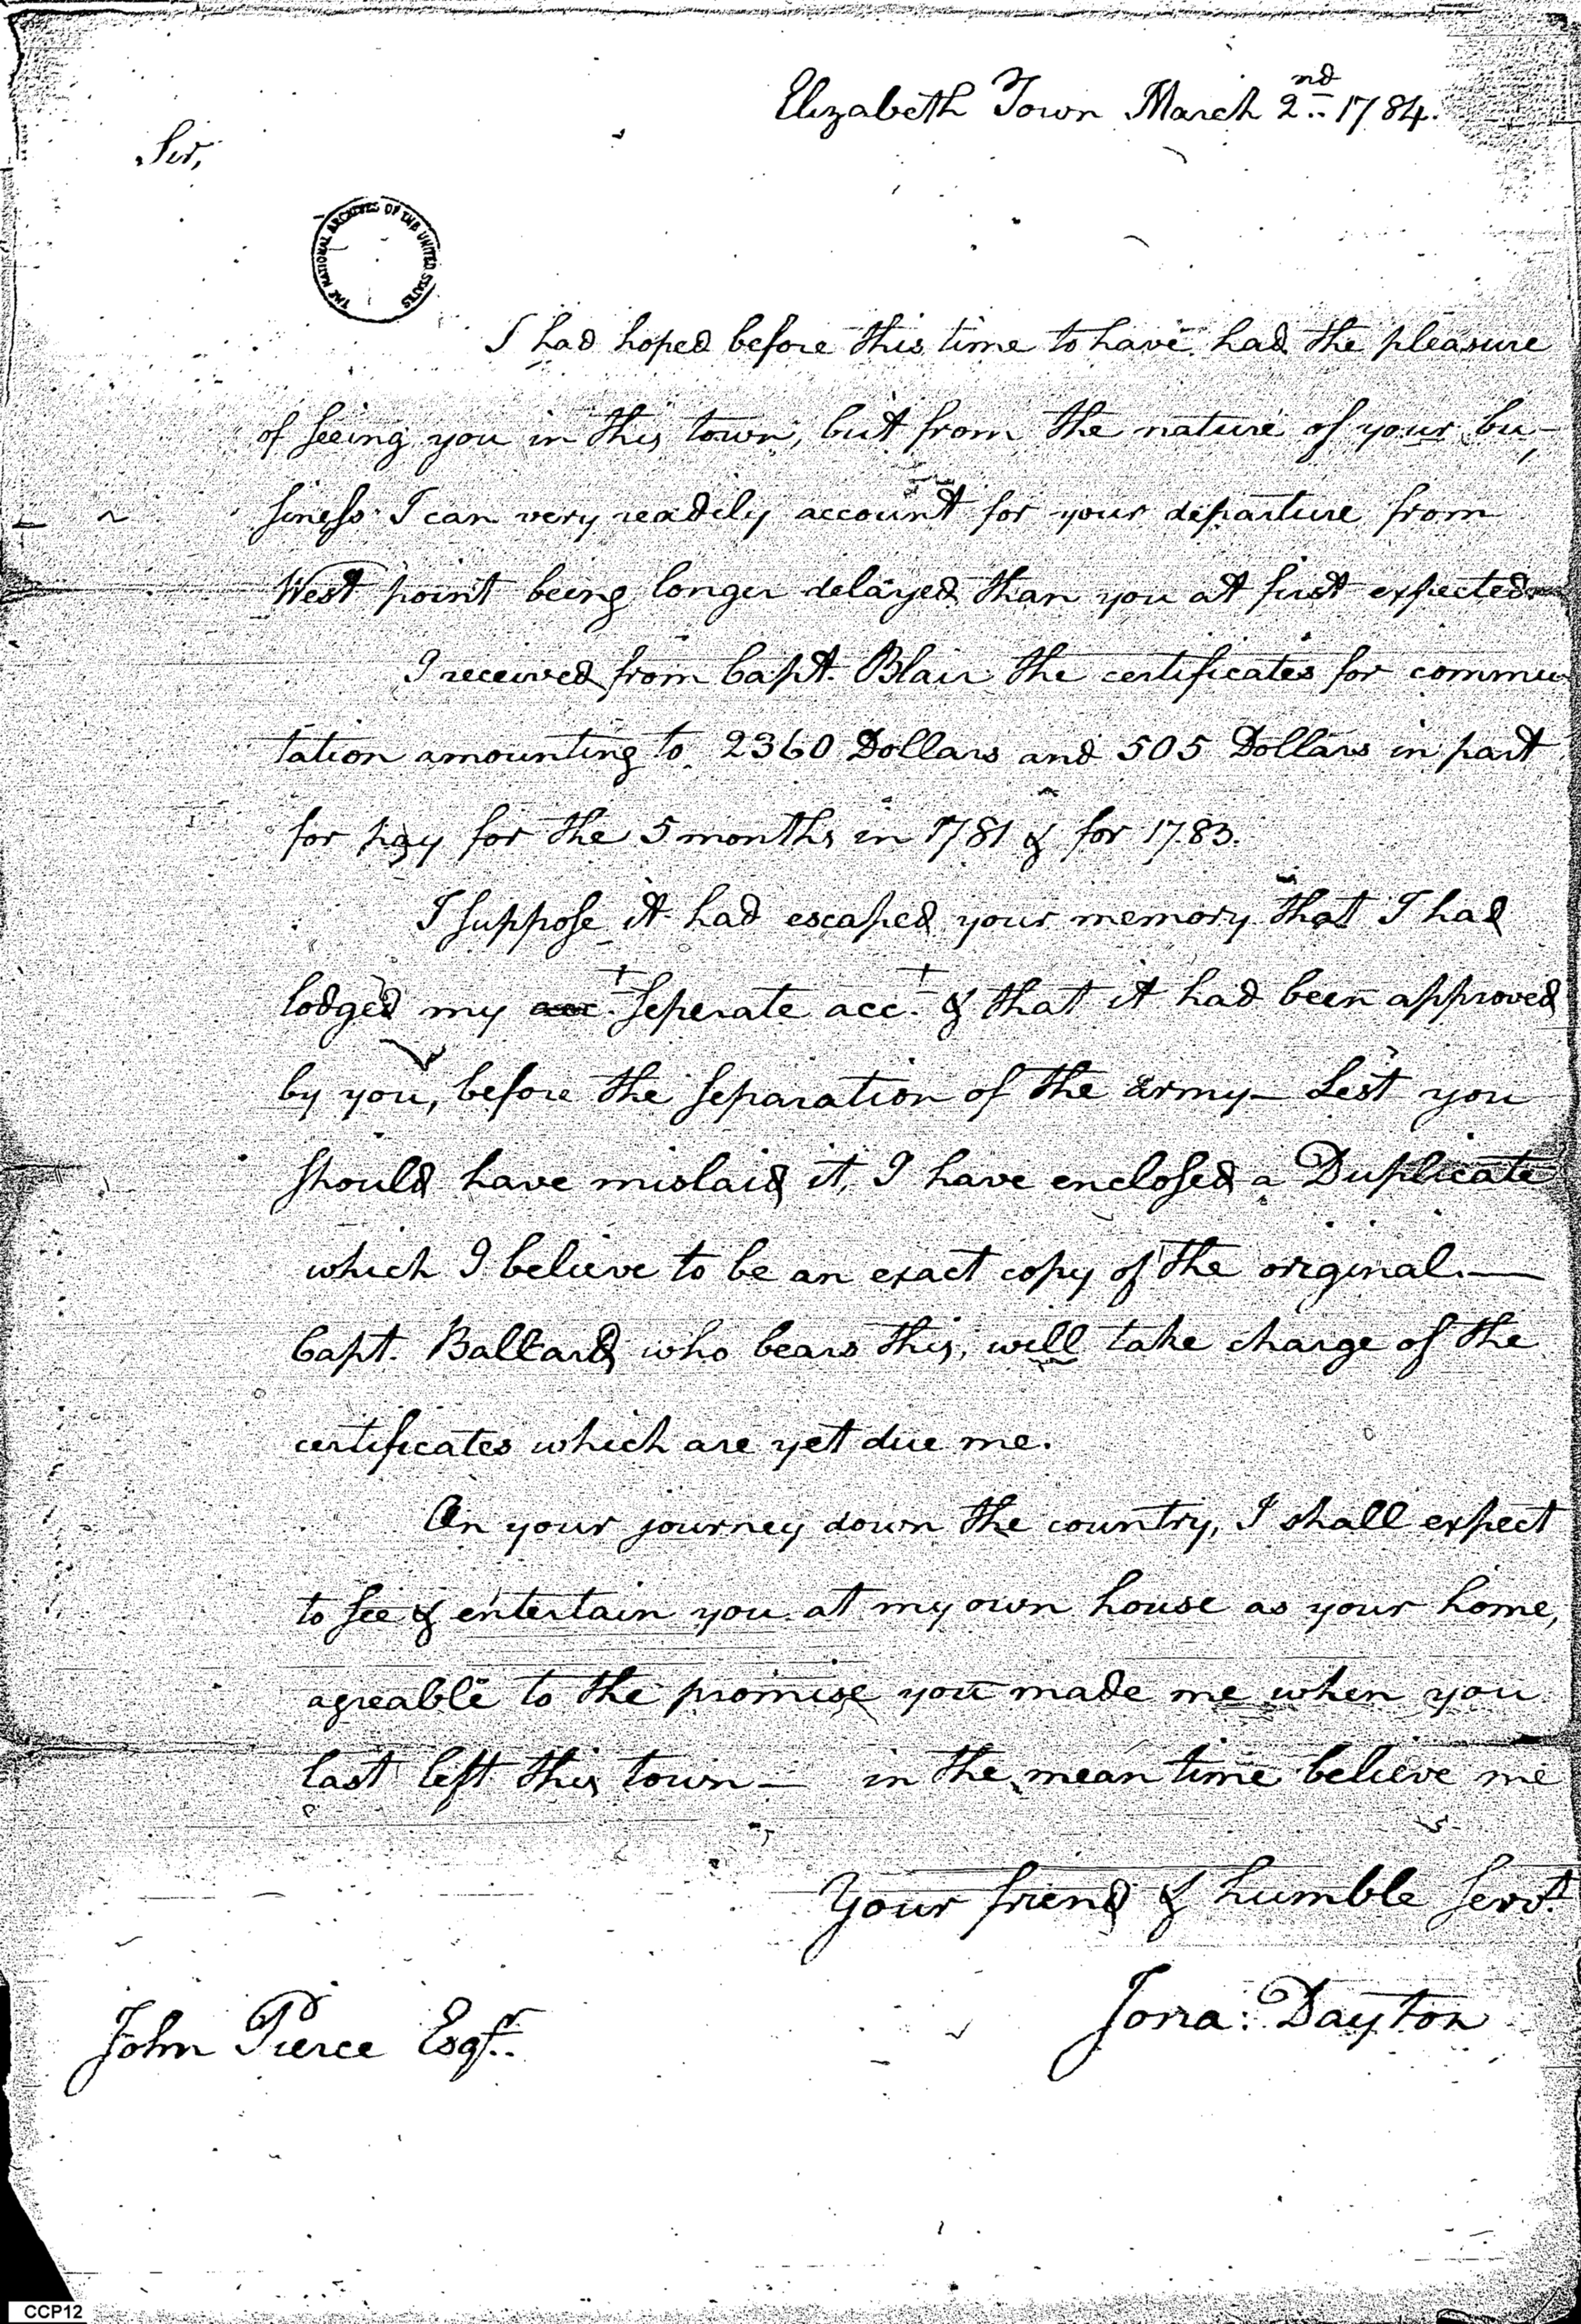 Elizabeth Town March 2nd 1784.
Sir,
THE NATIONAL ARCHIVES OF THE UNITED STATES
I had hoped before this time to have had the pleasure
of seeing you in this town, but from the nature of your bu-
siness I can very readily account for your departure from
West point being longer delayed than you at first expected
I received from Capt. Blair the certificates for commu
tation amounting to 2360 Dollars and 505 Dollars in part
for pay for the 5 months in 1781 & for 1783.
I suppose it had escaped your memory that I had
lodged my acc.t seperate acc.t & that it had been approved
by you, before the separation of the army— Lest you
should have mislaid it, I have enclosed a Duplicate
which I believe to be an exact copy of the original.—
Capt. Ballard who bears this, will take charge of the
certificates which are yet due me.
On your journey down the country, I shall expect
to see & entertain you at my own house as your home,
agreable to the promise you made me when you
last left this town— in the mean time believe me
Your friend & humble Servt.
Jona: Dayton
John Pierce Esqr.
CCP12